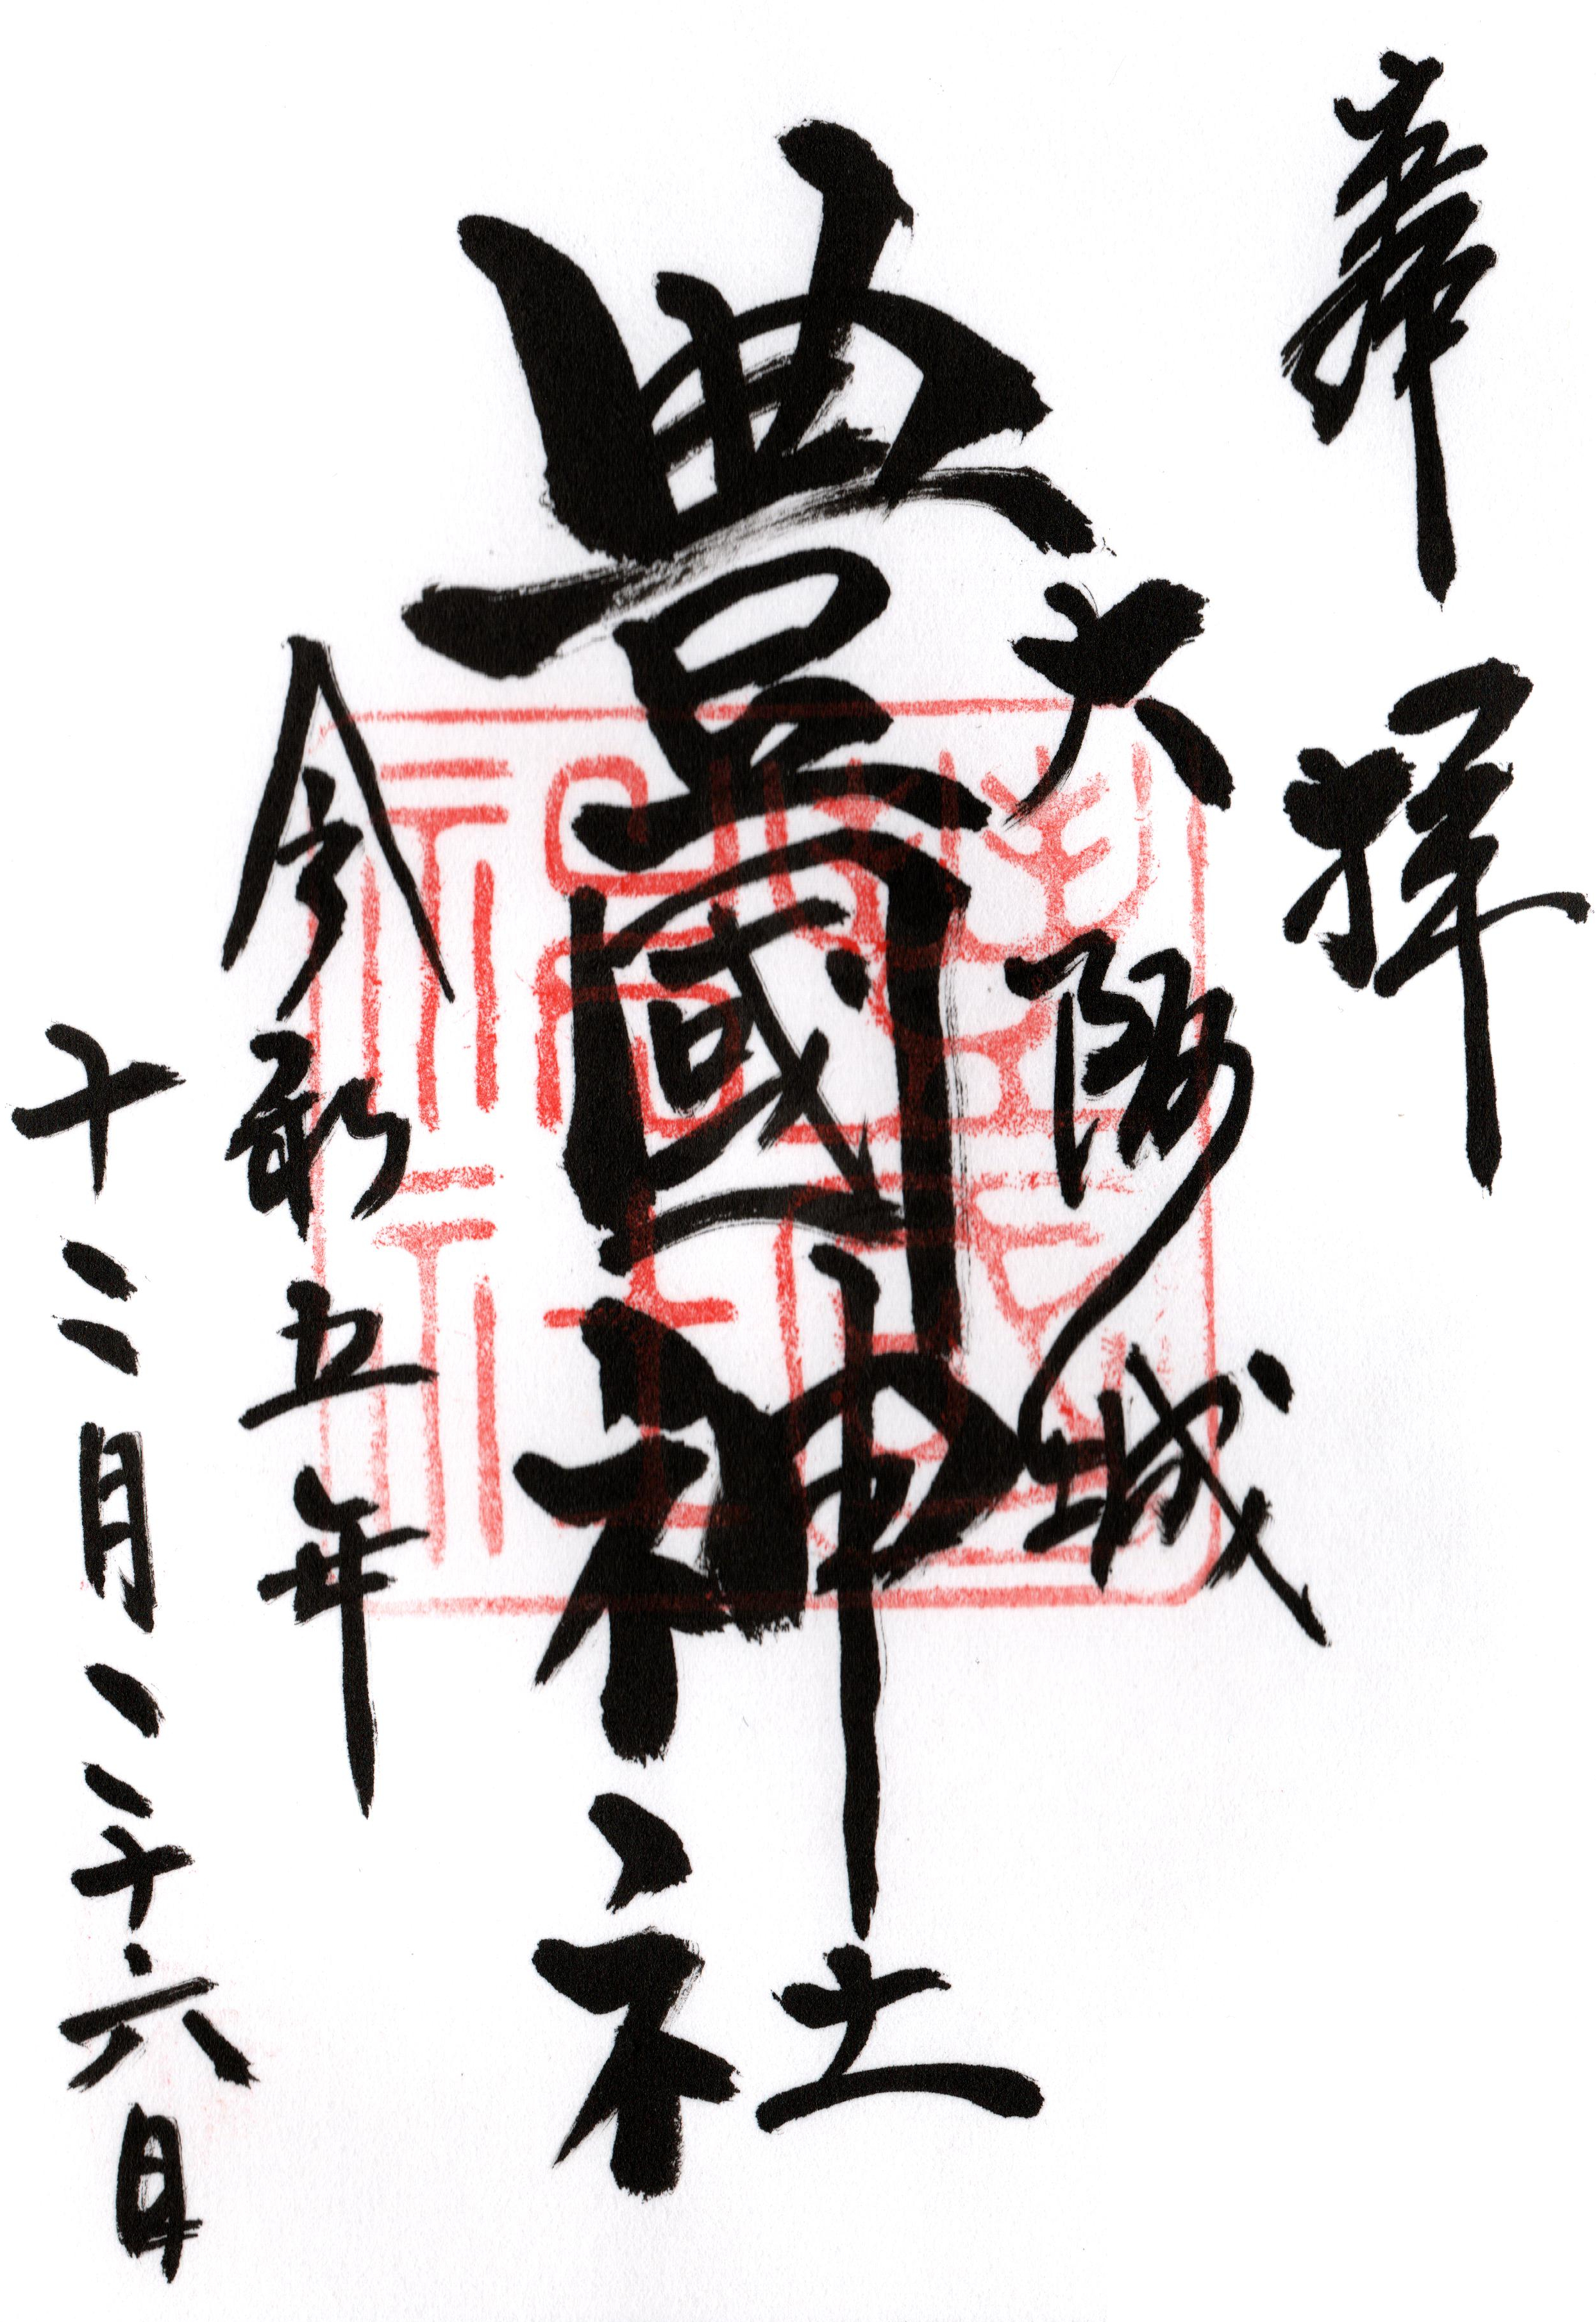 奉拝
大阪城
豊國神社
令和五年
十二月二十六日